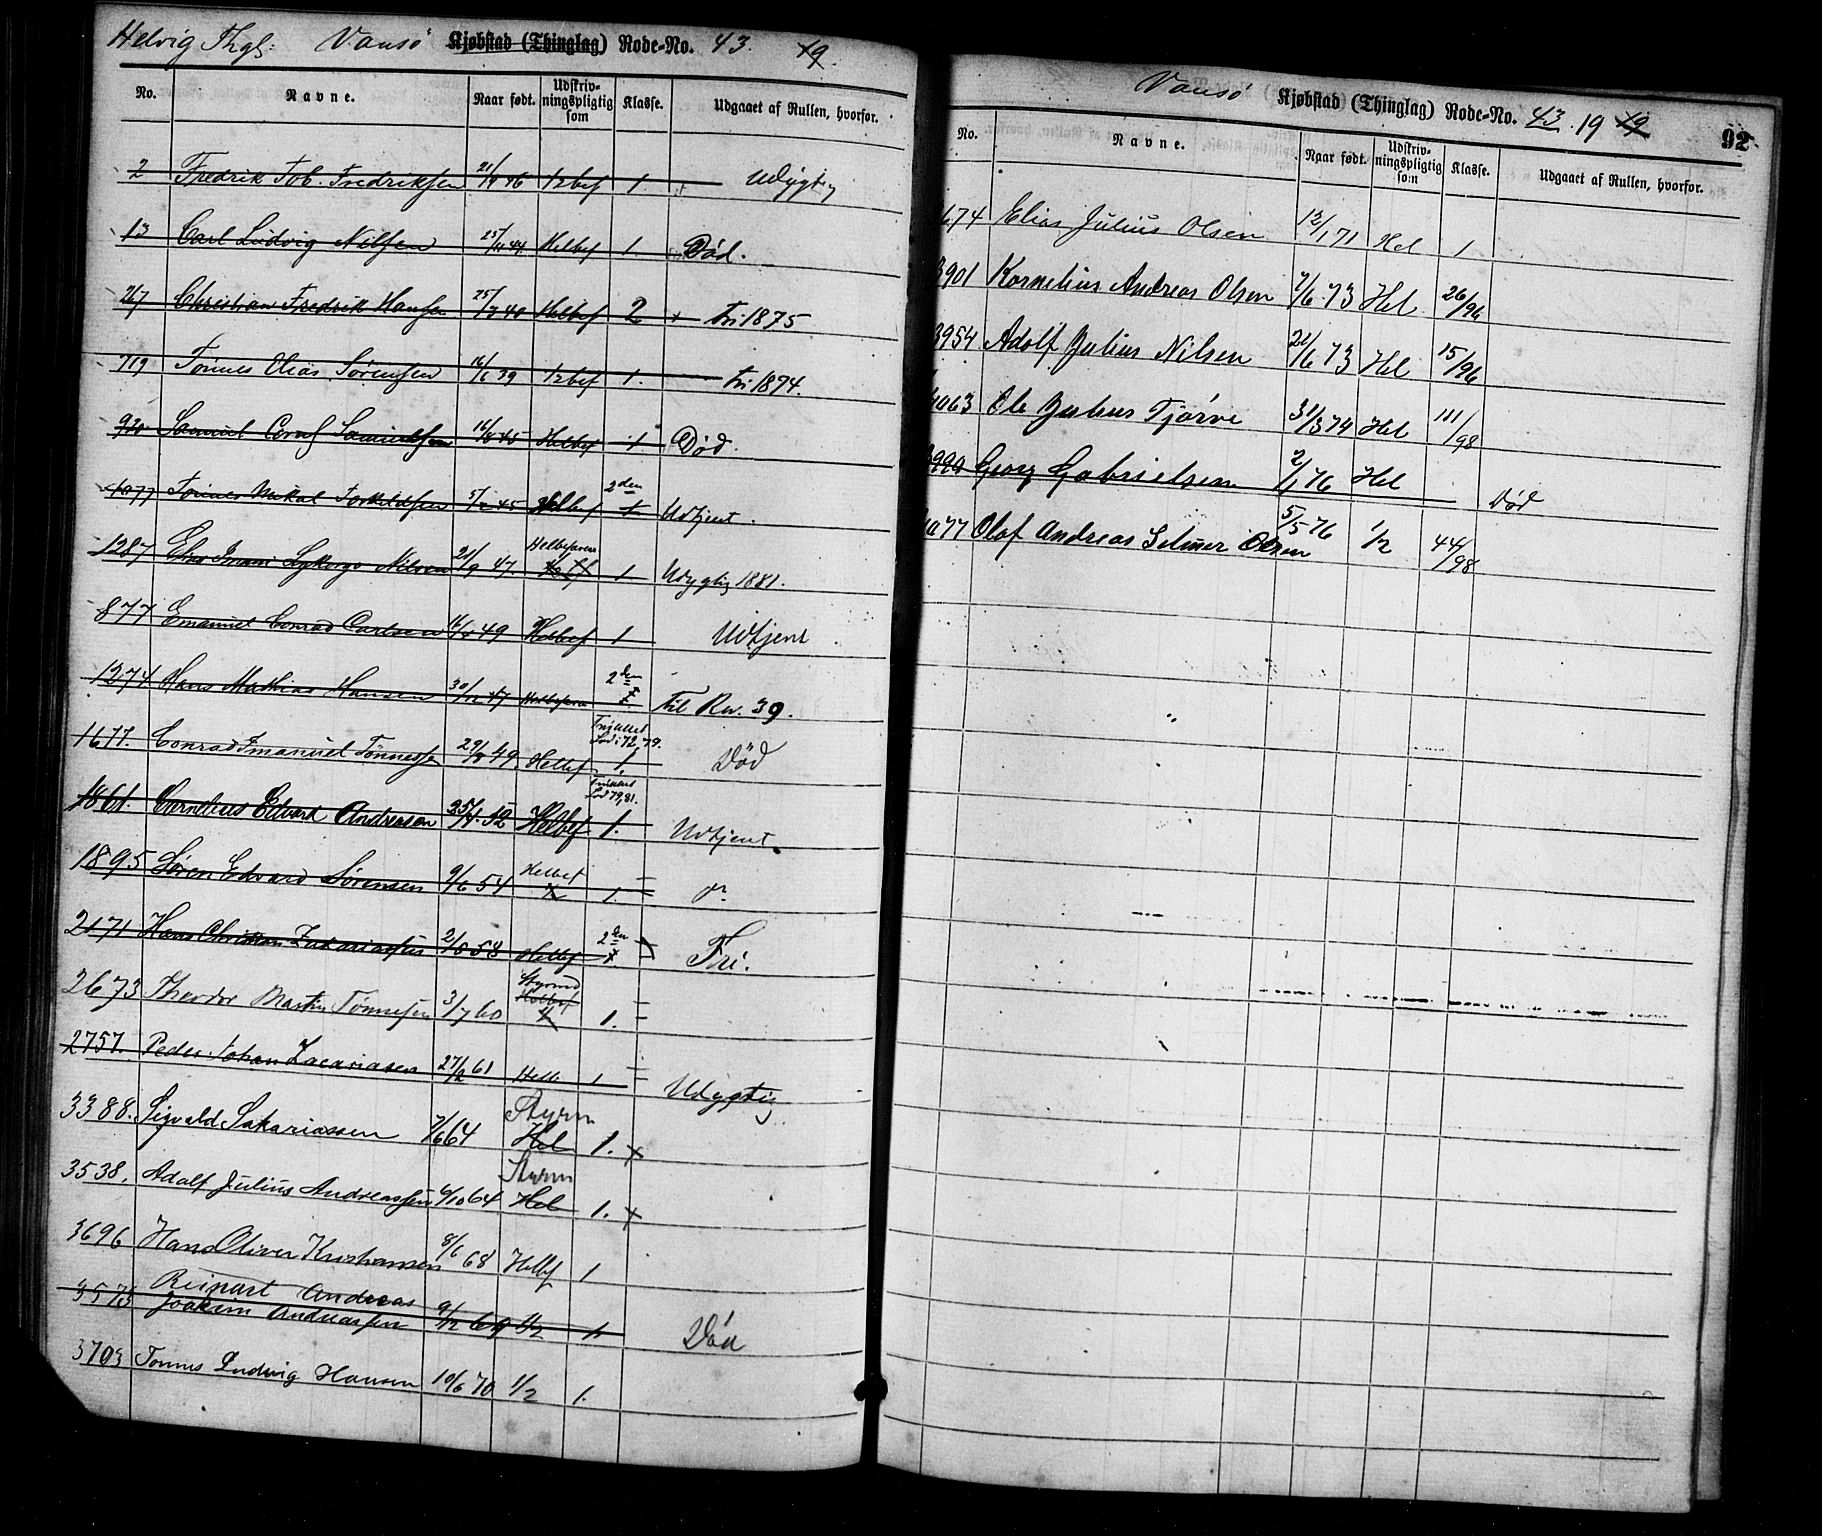 Helvig Thgl: Vansö Kjøbstad (Thinglag) Rode-No. 43. 19.
No. Navne. Naar født. Udskriv-ningspligtig som Klasse. Udgaaet af Rullen, hvorfor.
2 Fredrik Tob. Fredriksen 21/4 46 1/2 bef 1. Udygtig
13 Carl Ludvig Nilsen 44 Helbef 1. Død.
267 Christian Fredrik Hansen 25/7 40 Helbef 2 Fri 1875
719 Tønnes Elias Sørensen 16/6 39 1/2 bef 1. Fri 1874.
920 Samuel Samuelsen 45 Helbef 1 Død.
1077 Tønnes Mikal Torkildsen 45 Helbef 2den 1 Udtjent.
1287 Elias Nilsen 21/9 47. Helbefaren 1 Udygtig 1881.
877 Emanuel Conrad Carlsen 49 Helbef 1 Udtjent
1274 Hans Mathias Hansen 30/12 47 Helbefaren 2den Til Rn. 39.
1677. Conrad Emanuel Tønnessen 49 Helbef 1 Død
1861. Cornelius Edvard Andreasen 52 Helbef 1. Udtjent.
1895 Søren Edvard Sørensen 9/6 54 Helbef 1.
2171 Hans Christian Zakariassen 58 Helbef 2den Fri.
2673 Theodor Martin Tønnesen 3/7 60 Styrmd Helbef 1.
2757. Peder Johan Zacariasen 27/2 61 Helb 1 Udygtig
3388. Sigvald Sakariassen 7/6 64 Styrm Hel 1. x
3538. Adolf Julius Andreassen 6/10 64 Styrm Hel 1. x
3696 Hans Oliver Kristiansen 8/6 68 Helbf 1
3573 Reinart Andreas Joakim Andreassen 9/12 69 1/2 1. Død
3703 Tønnes Ludvig Hansen 10/6 70 1/2 1.
Vansö Kjøbstad (Thinglag) Rode-No. 43. 19 19 92
No. Navne. Naar født. Udskriv-ningspligtig som Klasse. Udgaaet af Rullen, hvorfor.
674 Elias Julius Olsen 12/1 71 Hel 1
3901 Kornelius Andreas Olsen 7/6 73 Hel 26/96
3954 Adolf Julius Nilsen 21/6 73 Hel 15/96
4063 Ole Julius Tjørve 31/3 74 Hel 111/98
3990 Georg Gabrielsen 2/1 76 Hel Død
4077 Olaf Andreas Selmer Olsen 5/5 76 1/2 44/98